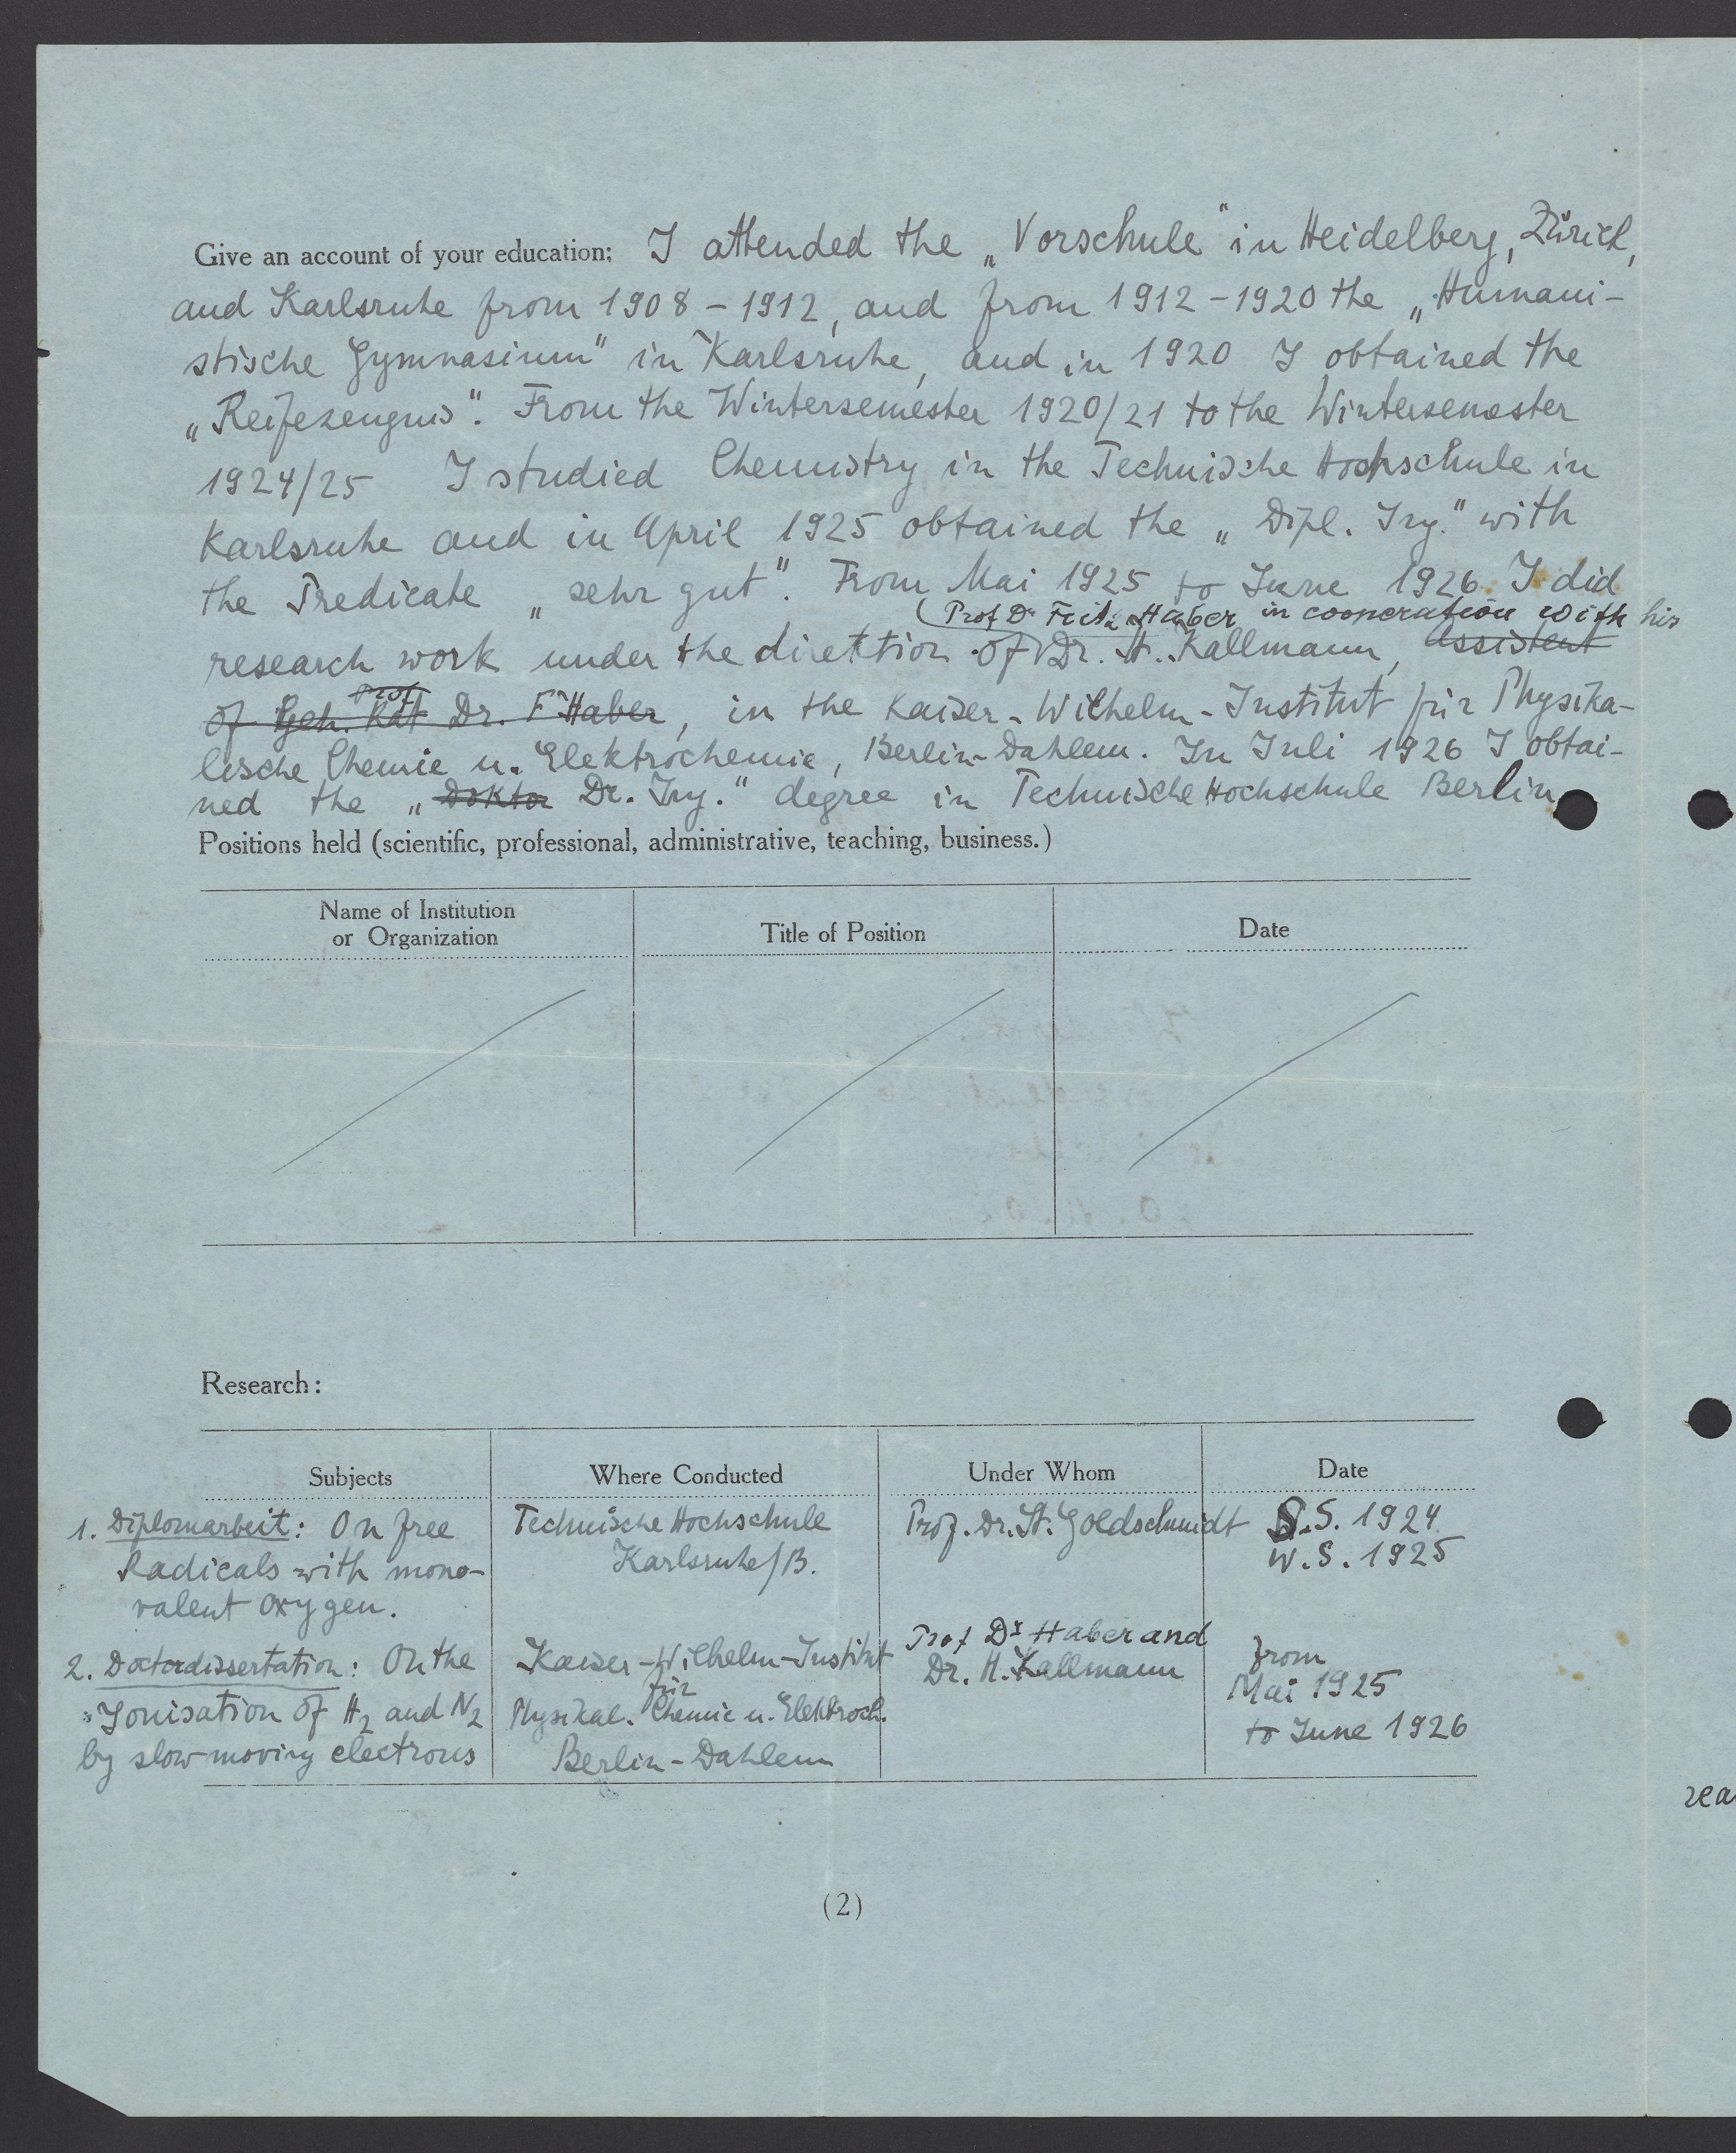 Give an account of your education; I attended the „Vorschule" in Heidelberg, Zürich,
and Karlsruhe from 1908 – 1912, and from 1912 – 1920 the „Humani-
stische Gymnasium" in Karlsruhe, and in 1920 I obtained the
„Reifezeugnis". From the Wintersemester 1920/21 to the Wintersemester
1924/25 I studied Chemistry in the Technische Hochschule in
Karlsruhe and in April 1925 obtained the „Dipl. Ing." with
the Predicate „sehr gut". From Mai 1925 to June 1926 I did
(Prof Dr Fritz Haber in cooperation with his
research work under the direktion of Dr. H. Kallmann, Assistent
Prof
of Geh. Rat Dr. F Haber, in the Kaiser-Wilhelm-Institut für Physika-
lische Chemie u. Elektrochemie, Berlin-Dahlem. In Juli 1926 I obtai-
ned the „Doktor Dr. Ing." degree in Technische Hochschule Berlin
Positions held (scientific, professional, administrative, teaching, business.)
Name of Institution
or Organization
Title of Position
Date
Research:
Subjects
Where Conducted
Under Whom
Date
1. Diplomarbeit: On free
Radicals with mono-
valent oxygen.
Technische Hochschule
Karlsruhe/B.
Prof. Dr. St. Goldschmidt
S.S. 1924
W.S. 1925
2. Doctordissertation: On the
Ionisation of H2 and N2
by slow moving electrons
Kaiser-Wilhelm-Institut
für
Physikal. Chemie u. Elektroch.
Berlin-Dahlem
Prof Dr Haber and
Dr. H. Kallmann
from
Mai 1925
to June 1926
rea
(2)